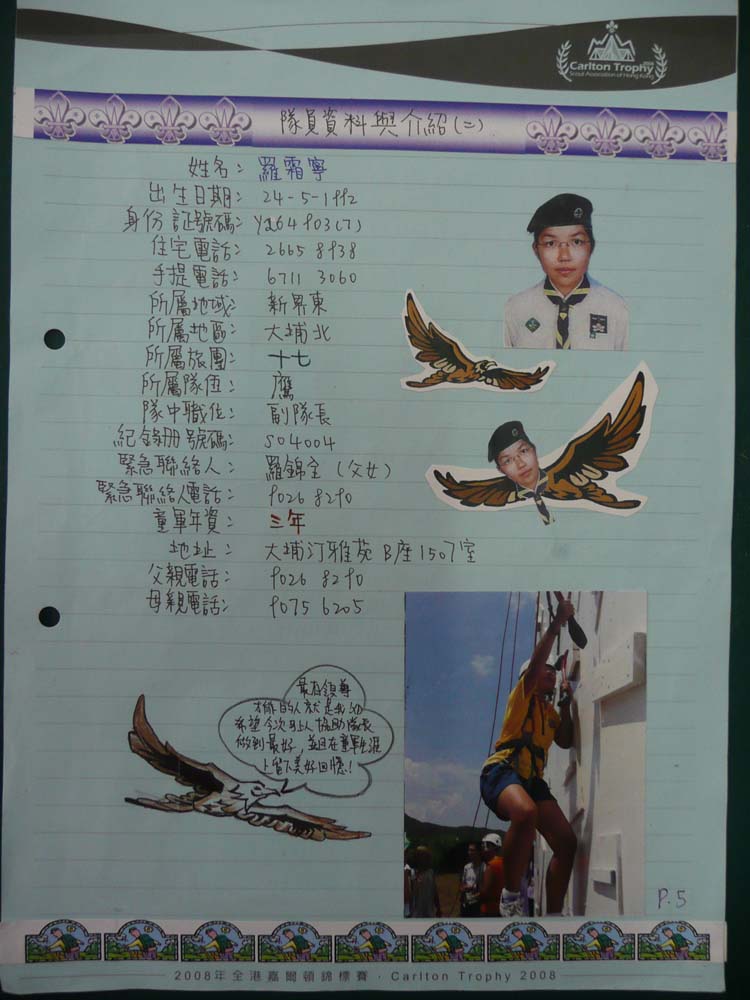 Carlton Trophy
Scout Association of Hong Kong
隊員資料與介紹(二)
姓名: 羅霜寧
出生日期: 24-5-1992
身份証號碼:
住宅電話: 2665 8938
手提電話: 6711 3060
所屬地域: 新界東
所屬地區: 大埔北
所屬旅團: 十七
所屬隊伍: 鷹
隊中職位: 副隊長
紀錄冊號碼: S04004
緊急聯絡人: 羅錦全 (父女)
緊急聯絡人電話: 9026 8290
童軍年資: 三年
地址: 大埔汀雅苑 B座1507室
父親電話: 9026 8290
母親電話: 9075 6205
最有領導
才能的人就是我
希望今次可以協助隊長
做到最好,並且在童軍生涯
上留下美好回憶!
P.5
2008年全港嘉爾頓錦標賽 · Carlton Trophy 2008